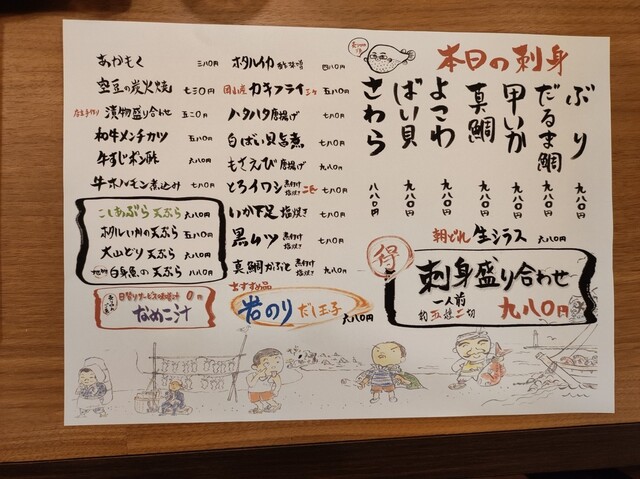 本日の刺身
ぶり 九八〇円
だるま鯛 九八〇円
甲いか 九八〇円
真鯛 九八〇円
よこわ 九八〇円
ばい貝 九八〇円
さわら 八八〇円
朝どれ 生シラス 六八〇円
得
刺身盛り合わせ
一人前
九八〇円
あかもく 三八〇円
空豆の炭火焼 七三〇円
漬物盛り合わせ 五二〇円
和牛メンチカツ 五八〇円
牛すじポン酢 六八〇円
牛ホルモン煮込み 七八〇円
こしあぶら天ぷら 六八〇円
ホタルイカの天ぷら 五八〇円
大山どり天ぷら 六八〇円
白身魚の天ぷら 八八〇円
日替りサービス味噌汁 0円
なめこ汁
ホタルイカ 酢味噌 四八〇円
岡山産 カキフライ 三ケ 五八〇円
ハタハタ唐揚げ 七八〇円
白ばい貝旨煮 七八〇円
もさえび唐揚げ 九八〇円
とろイワシ 煮付け 塩焼き 二匹 七八〇円
いか下足 塩焼き 七八〇円
黒ムツ 煮付け 塩焼き 七八〇円
真鯛かぶと 煮付け 塩焼き 九八〇円
おすすめ品
岩のりだし玉子 六八〇円